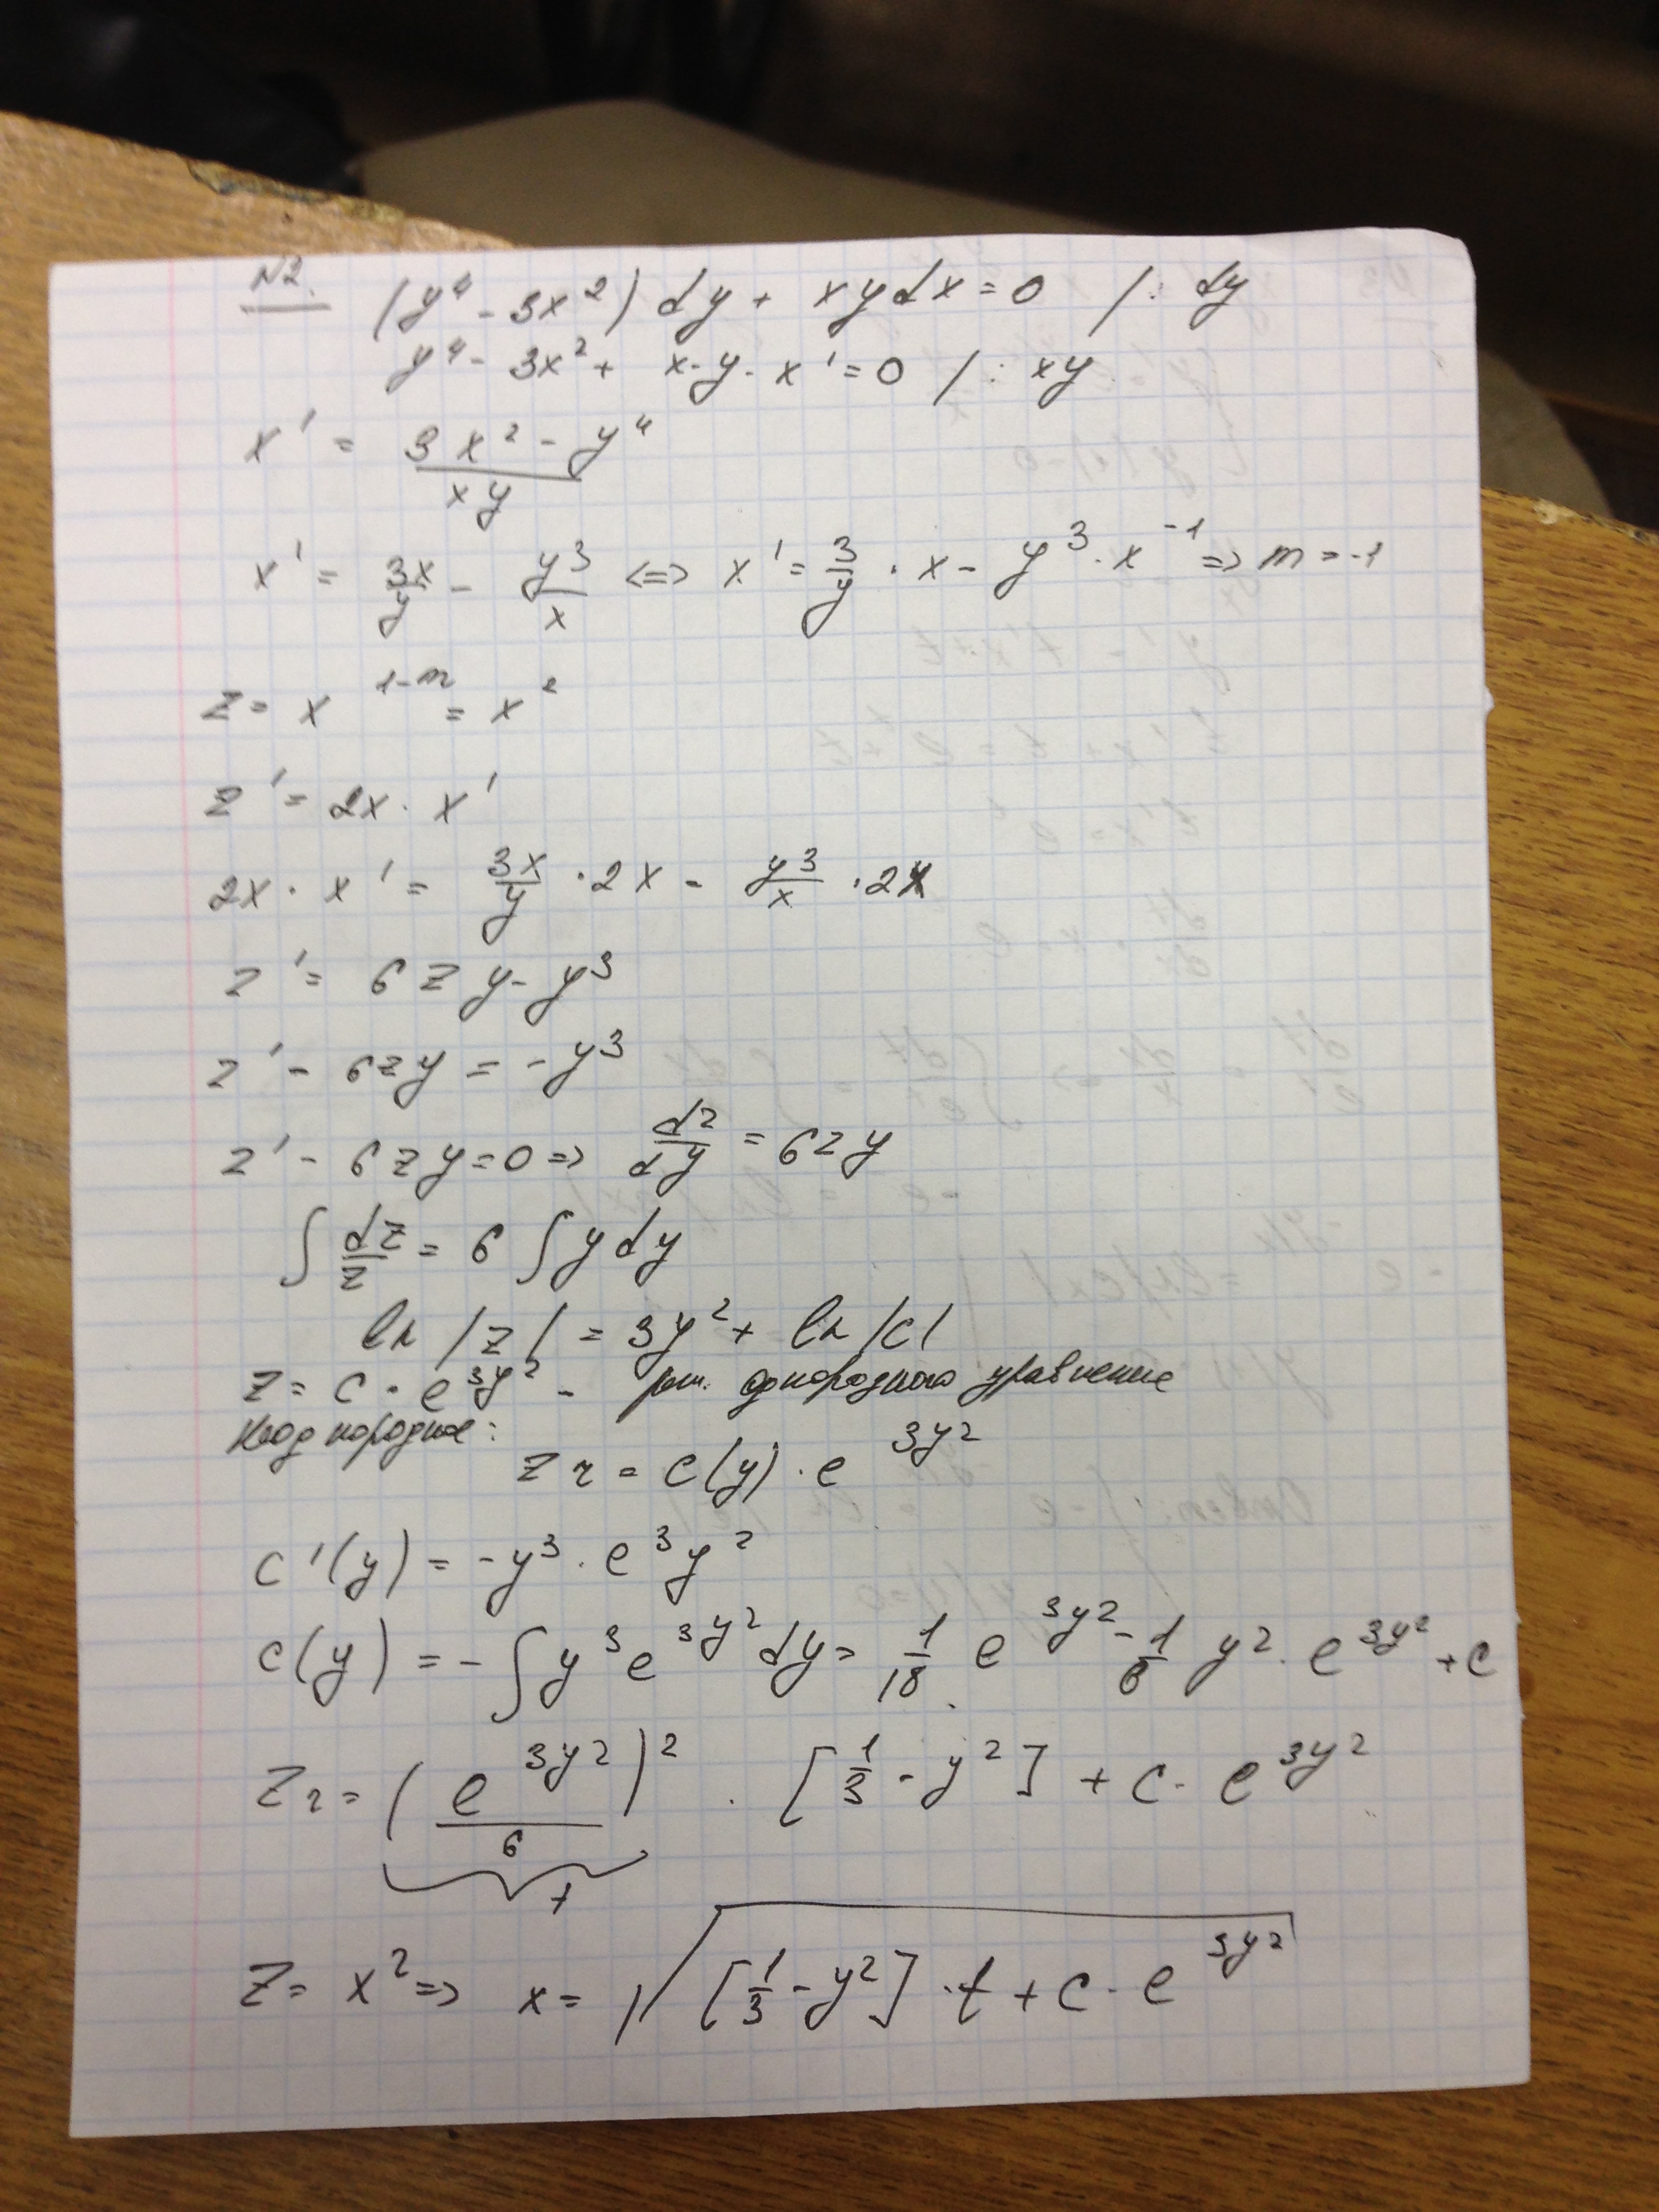 N2. (y⁴ - 3x²) dy + xydx = 0 /: dy
y⁴ - 3x² + x · y · x' = 0 /: xy
x' = (3x² - y⁴)/(xy)
x' = 3x/y - y³/x <=> x' = 3/y · x - y³ · x⁻¹ => m = -1
z = x^(1-m) = x²
z' = 2x · x'
2x · x' = 3x/y · 2x - y³/x · 2x
z' = 6zy - y³
z' - 6zy = -y³
z' - 6zy = 0 => dz/dy = 6zy
∫ dz/z = 6 ∫ y dy
ln |z| = 3y² + ln |c|
z = c · e^(3y²) - реш. однородного уравнение
Неоднородное:
z₂ = c(y) · e^(3y²)
c'(y) = -y³ · e^(3y²)
c(y) = -∫ y³ e^(3y²) dy = 1/18 e^(3y²) - 1/6 y² · e^(3y²) + c
z₂ = (e^(3y²)/6)² · [1/3 - y²] + c · e^(3y²)
t
z = x² => x = √([1/3 - y²] · t + c · e^(3y²))